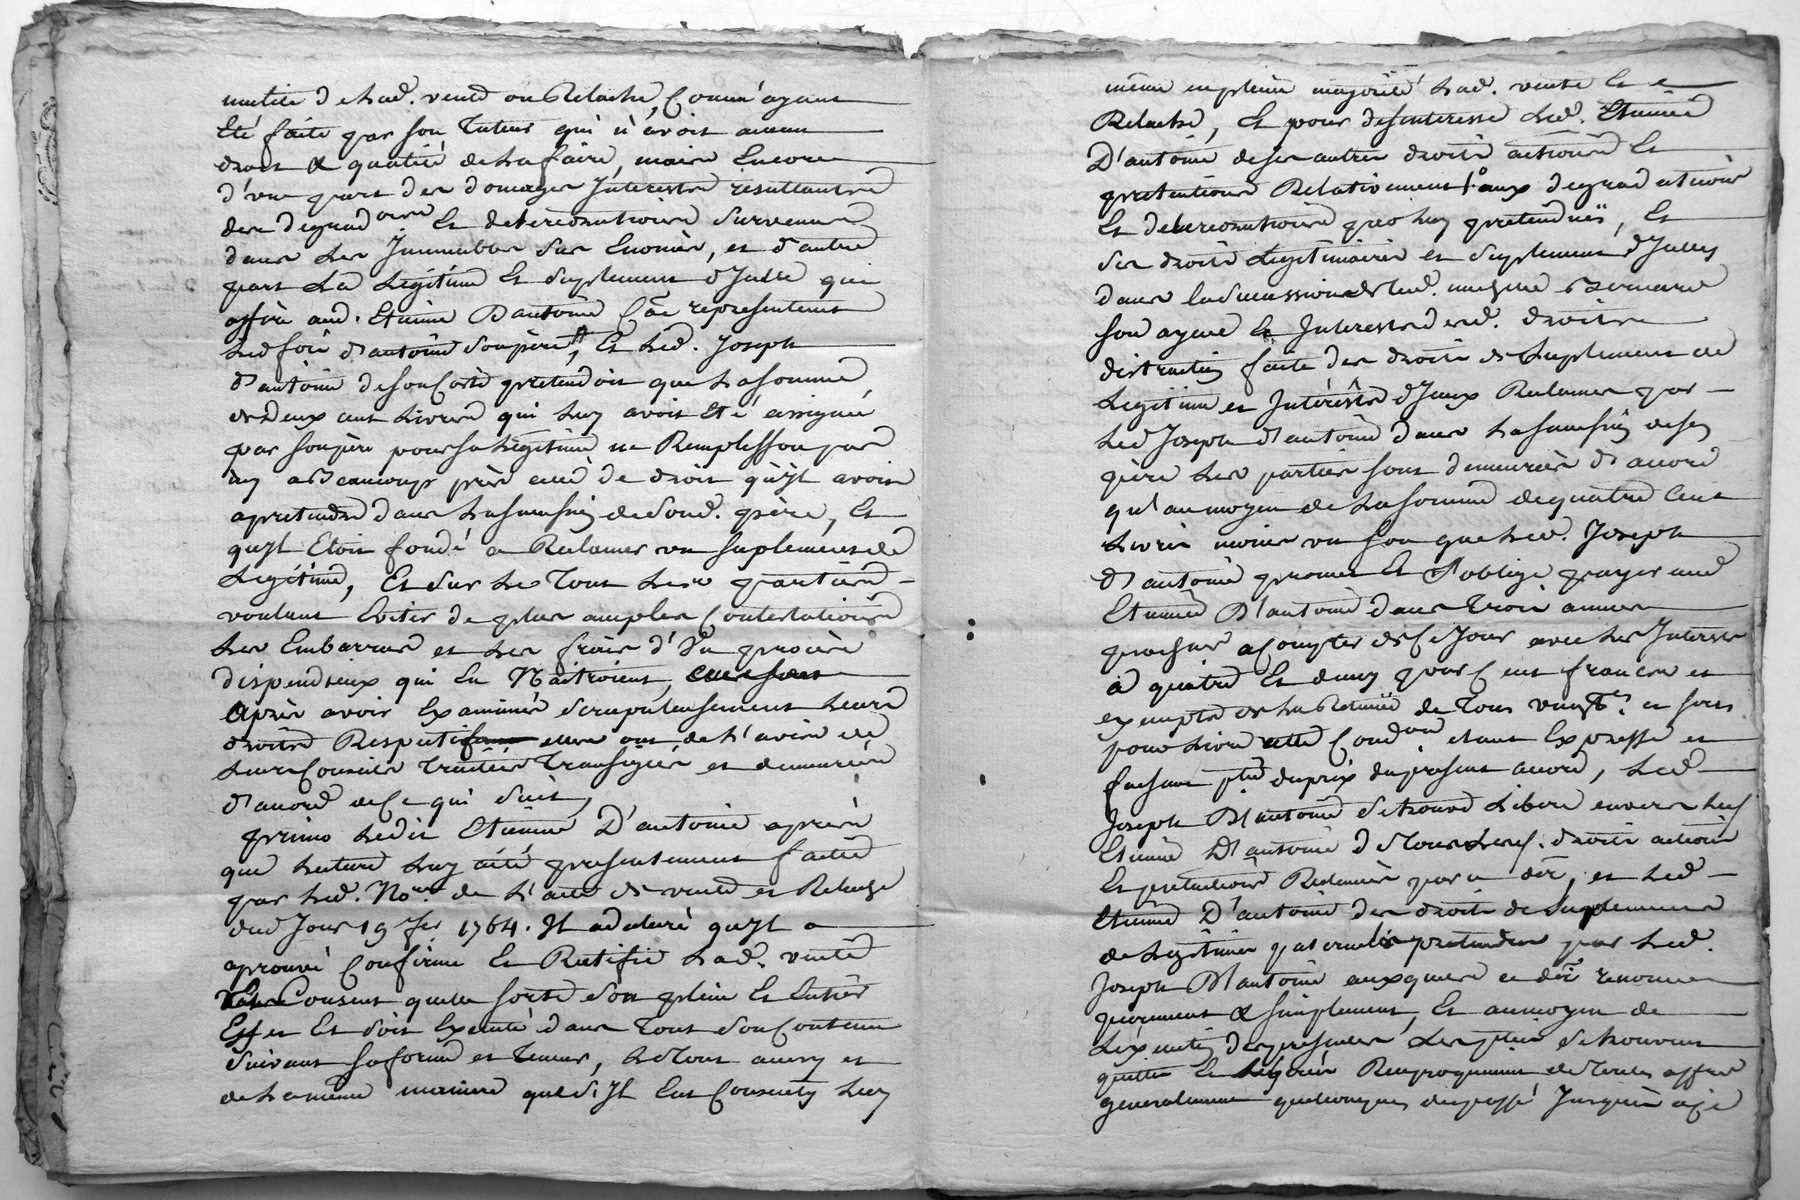 nullité de lad. vente ou Relache, Comm'ayant
Eté faite par son Tuteur qui n'avoit aucun
droit & qualité de la faire, mais Encore
d'une part des domages Interestz resultantz
des degradaons Et deteriorations Survenues
dans Les Immeubles Sus Enoncés, et d'autre
part La Legitime Et Suplement d'Jcelle qui
affere aud. Etienne Dantoine Comme representant
led feu d'antoine son père, Et Led. Joseph
d'antoine de son Costé pretendoit que La somme
de deux cent Livres qui Luy avoit Eté assignée
par son père pour sa Legitime ne Remplissoit pas
a Beaucoup près celle de droit qu'jl avoit
a pretendre dans La succession de Sond. père, Et
qu'jl Etoit fondé a Reclamer un suplement de
Legitime, Et Sur Le Tout Les parties
voulant Eviter de plus amples Contestations
Les Embarras et Les frais d'Un procès
dispendieux qui En Naitroient,
Après avoir Examiné Scrupuleusement Leurs
droits Respectifs elles ont de L'avis de
Leurs Conseils Traités Transigés et demeurés
d'accord de Ce qui Suit,
primo Ledit Etienne D'antoine après
que Lecture Luy a été presentement faite
par Led. Nore de L'acte de vente et Relache
dud Jour 19 1764. Jl a declaré qu'jl a
aprouvé Confirme Et Ratifie Lad. vente
Consent quelle sorte Son plein Et Entier
Effet Et Soit Executé dans Tout Son Contenu
Suivant sa forme et Teneur, Le Tout ainsy et
de La même maniere que Si Jl Eut Consenty Luy
même en pleine majorité Lad. vente Et
Relache, Et pour desinteresser Led. Etienne
D'antoine de Ses autres droits actions Et
pretentions Relativement 1º aux degradations
Et deteriorations par Luy pretendües, Et
Ses droits Legitimaires et Suplement d'Jcelles
dans la Succession de Led. Bernard
son ayeul Et Interestz desd. droits
distraction faite des droits de Suplement de
Legitime et Intérêstz d'Jceux Reclamés par
Led Joseph d'antoine dans La succession de son
père Les parties sont demeurées d'accord
qu'au moyen de La somme de quatre Cent
Livres moins un sou que Led. Joseph
d'antoine promet Et S'oblige payer aud
Etienne D'antoine dans Trois années
prochaines a Compter de Ce Jour avec Les Interets
a quatre Et demy pour Cent francs et
exempts de La Retenue de Tous vingt.es et sous
pour Livre cette Condon etant Expresse et
faisant ptie du prix du present accord, Led
Joseph D'antoine Se trouve Liberé envers Led
Etienne D'antoine de Tous Lesd. droits actions
Et pretentions Reclamées par Ce der, et Led
Etienne D'antoine des droits de Suplement
de Legitime paternelle pretendus par Led.
Joseph D'antoine auxquels ce der renonce
purement & simplement, Et au moyen de
L'exécution des presentes Les parties Se trouvent
quittes Et Reciproquement de Toutes affres
generalement quelconques du passé Jusqu'à aje